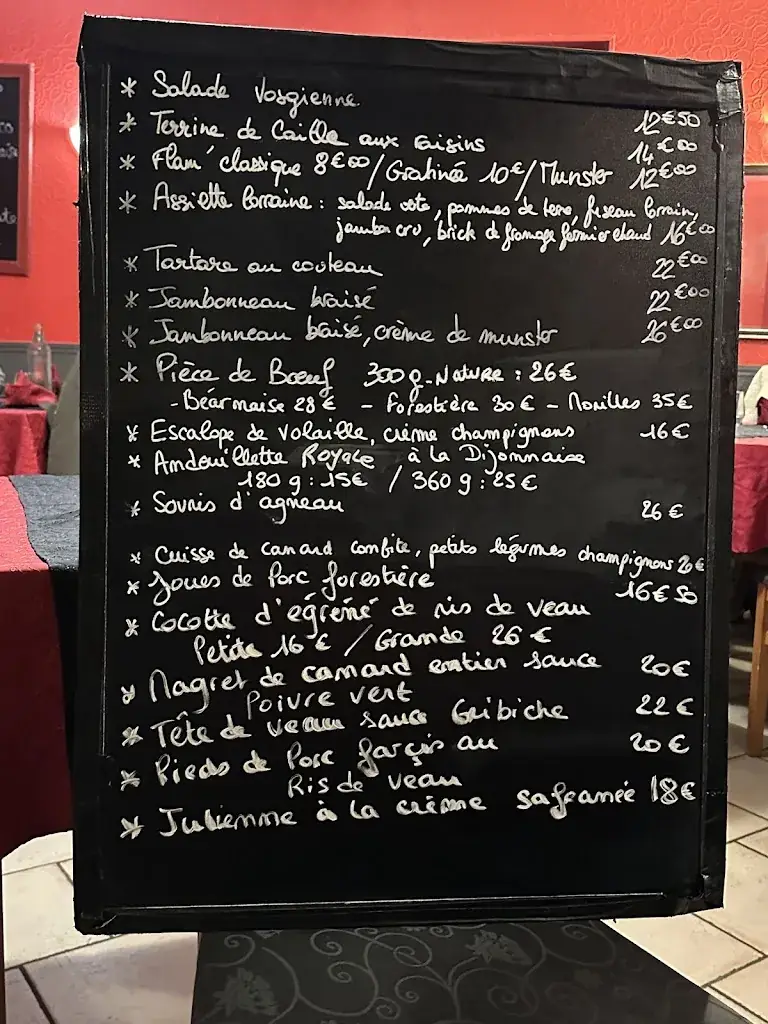 * Salade Vosgienne 12€50
* Terrine de Caille aux raisins 14€00
* Flam' classique 8€00/Gratinée 10€/Munster 12€00
* Assiette Lorraine : salade verte, pommes de terre, fuseau lorrain,
jambon cru, brick de fromage fermier chaud 16€00
* Tartare au couteau 22€00
* Jambonneau braisé 22€00
* Jambonneau braisé, crème de munster 26€00
* Pièce de Boeuf 300g-Nature : 26€
-Béarnaise 28€ - Forestière 30€ - Morilles 35€
* Escalope de volaille, crème champignons 16€
* Andouillette Royale à la Dijonnaise
180g : 15€ / 360g : 25€
* Souris d'agneau 26€
* Cuisse de canard confite, petits légumes champignons 20€
* Joues de Porc forestière 16€50
* Cocotte d'égrené de ris de veau
Petite 16€ / Grande 26€
* Magret de canard entier sauce 20€
Poivre vert
* Tête de veau sauce Gribiche 22€
* Pieds de Porc farçis au 20€
Ris de veau
* Julienne à la crème safranée 18€